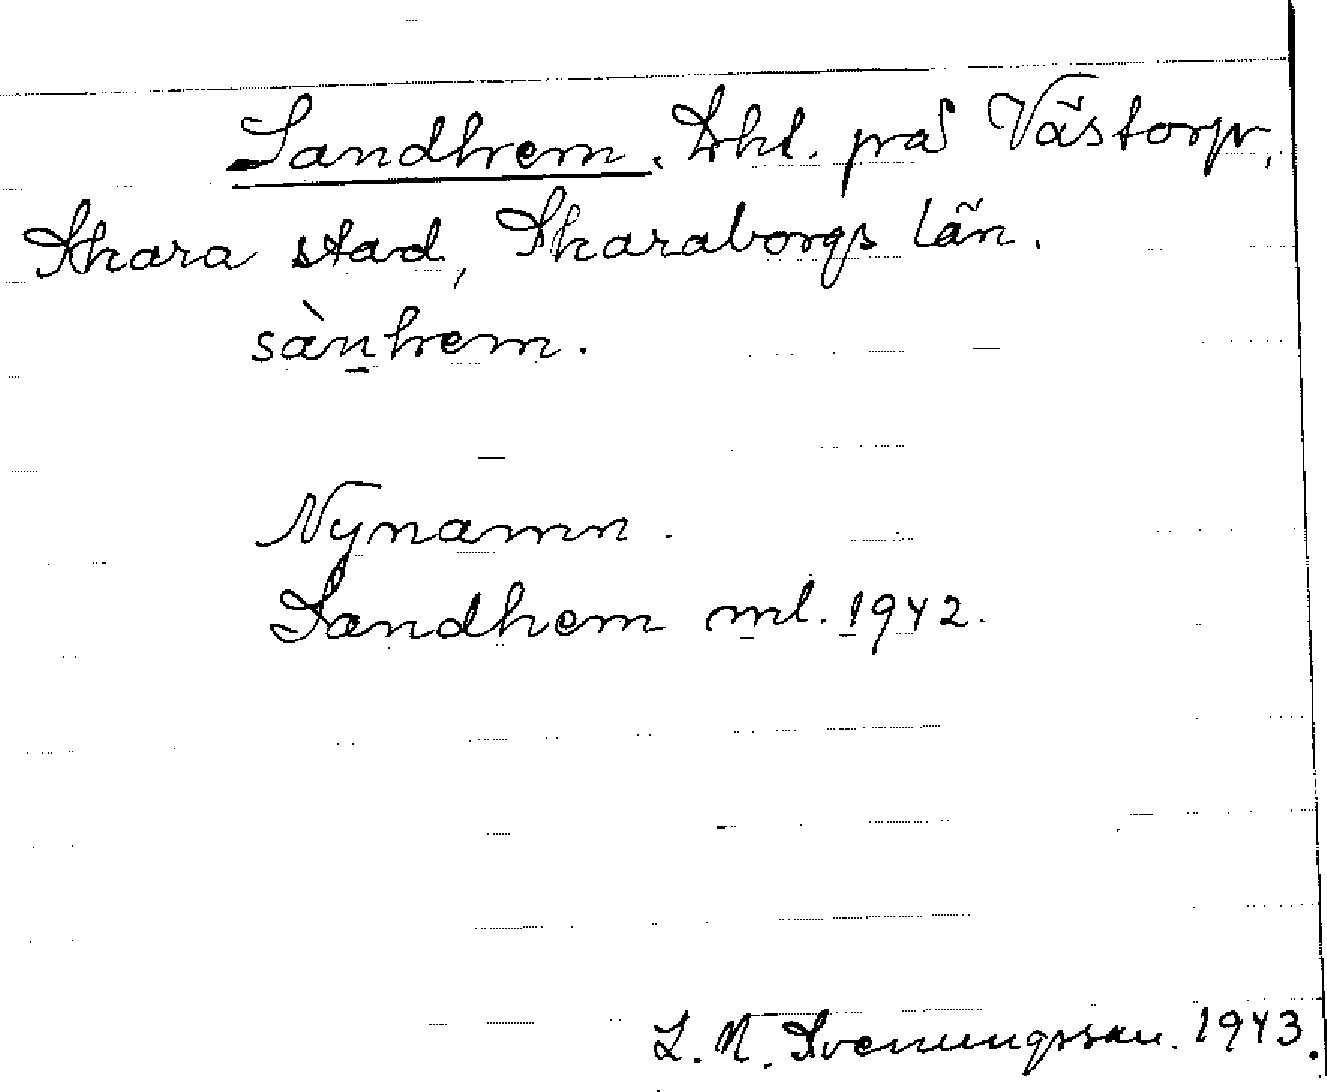 Sandhem. Lht. på Västorp,
Skara stad, Skaraborgs län.
sàn̲hem.
Nynamn.
Sandhem ml. 1942.
L. N. Svenungsson. 1943.